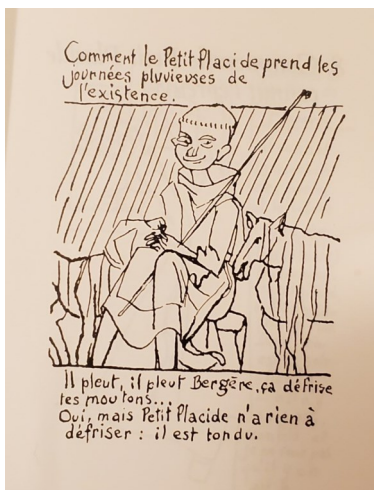 Comment le Petit Placide prend les
journées pluvieuses de
l'existence.
Il pleut, il pleut Bergère, ça défrise
tes moutons...
Oui, mais Petit Placide n'a rien à
défriser : il est tondu.